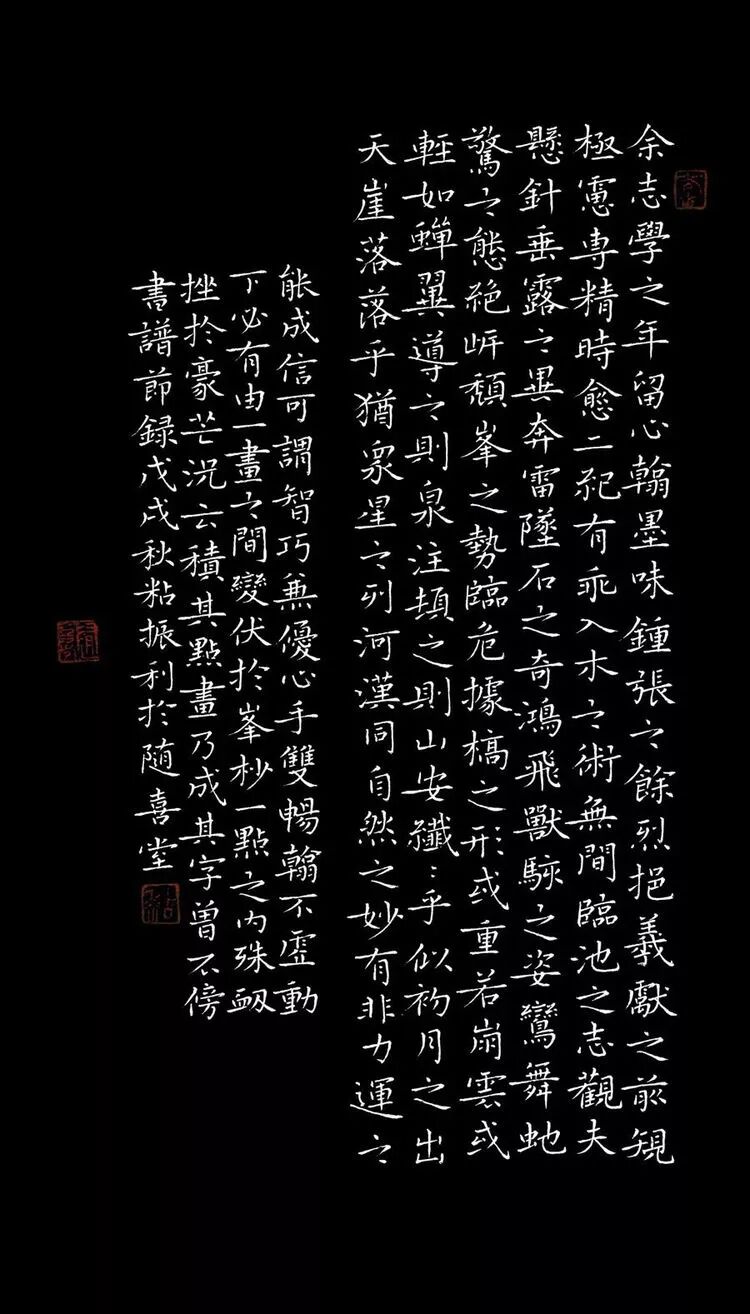 余志學之年留心翰墨味鍾張之餘烈挹羲獻之前規
極慮専精時愈二紀有乖入木之術無間臨池之志觀夫
懸針垂露之異奔雷墜石之奇鴻飛獸駭之姿鸞舞虵
驚之態絶岸頽峯之勢臨危據槁之形或重若崩雲或
輕如蟬翼導之則泉注頓之則山安纖〻乎似初月之出
天崖落落乎猶衆星之列河漢同自然之妙有非力運之
能成信可謂智巧兼優心手雙暢翰不虛動
下必有由一畫之間變伏於峯杪一點之內殊衂
挫於豪芒況云積其點畫乃成其字曾不傍
書譜節録戊戌秋粘振利於随喜堂